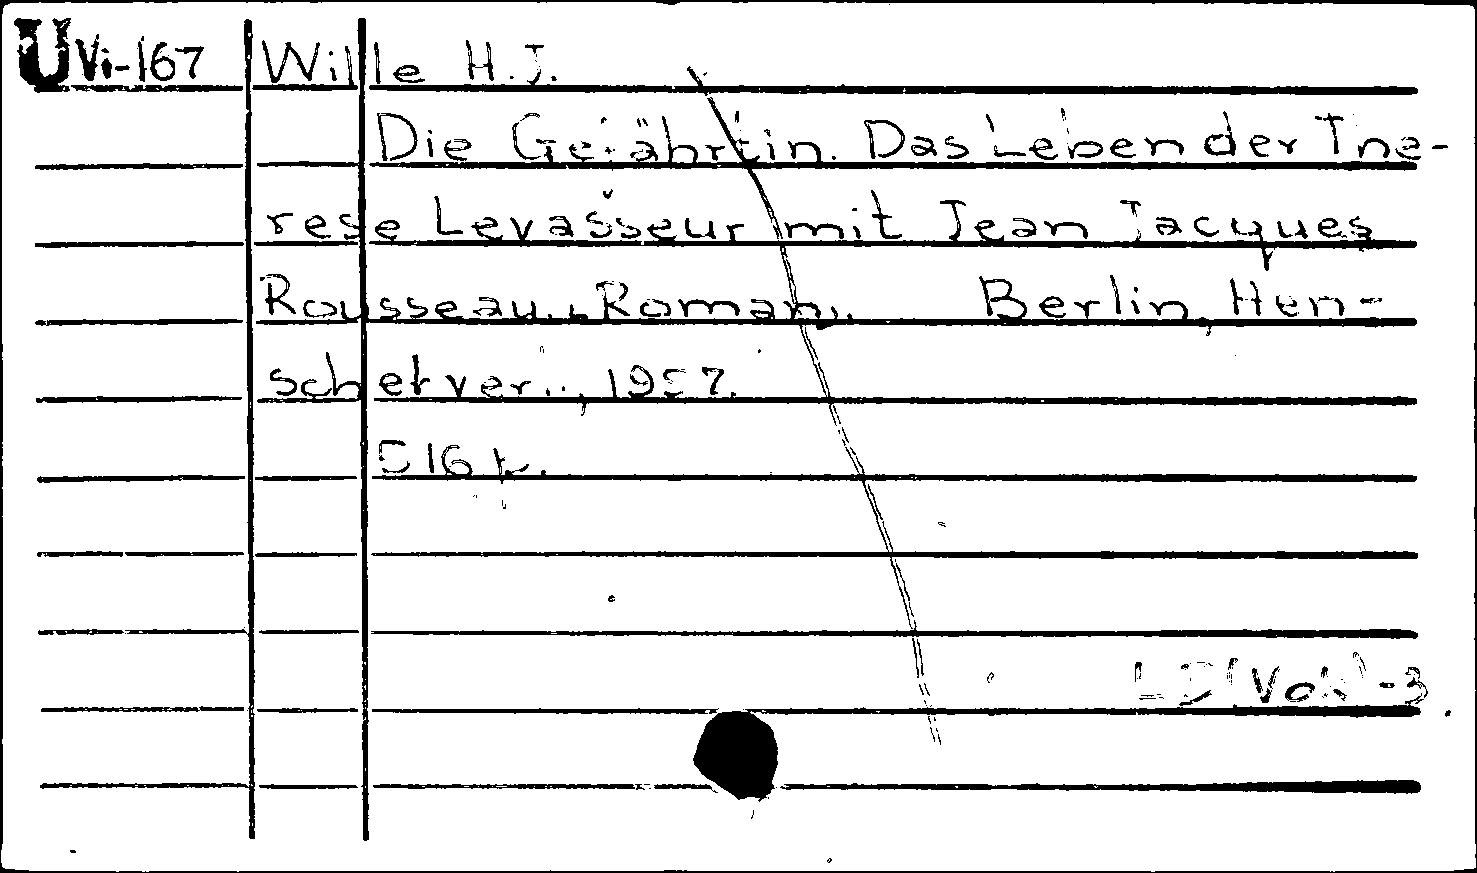 U Vi-167 Wille H.J.
Die Gefährtin. Das Leben der The-
rese Levasseur mit Jean Jacques
Rousseau. Roman. Berlin, Hen-
schelverl., 1957.
516 p.